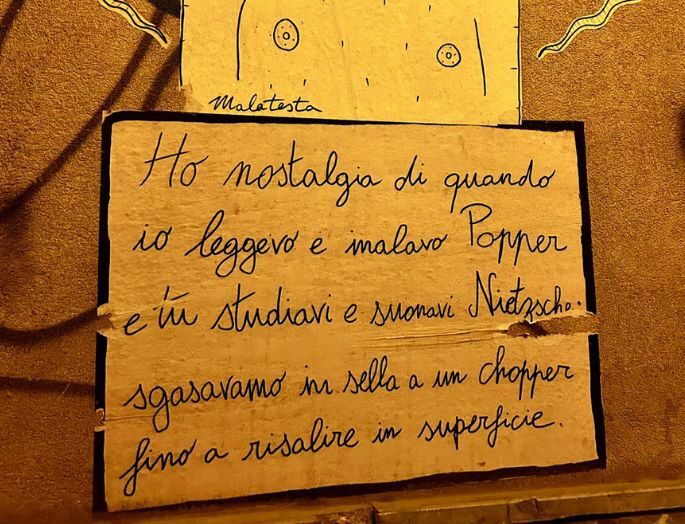 Malatesta
Ho nostalgia di quando
io leggevo e inalavo Popper
e tu studiavi e suonavi Nietzsche.
sgasavamo in sella a un chopper
fino a risalire in superficie.